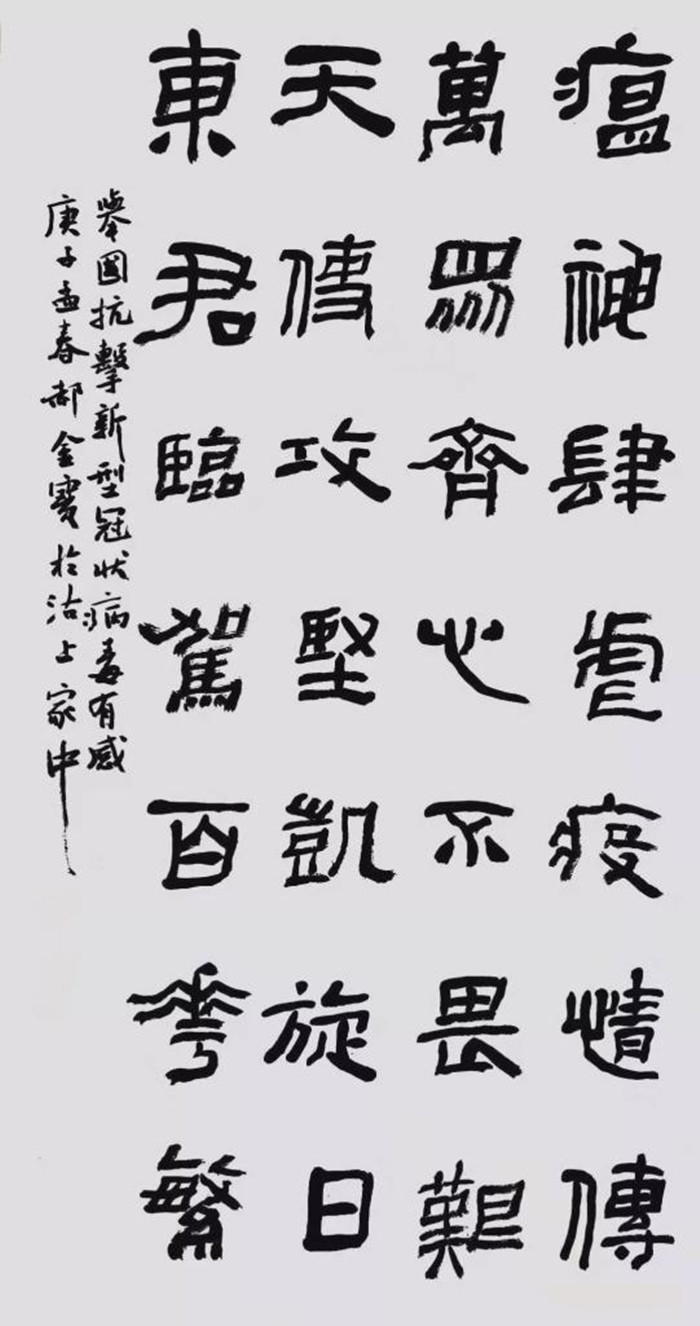 瘟神肆虐疫情傳
萬眾齊心不畏難
天使攻堅凱旋日
東君臨駕百花繁
舉國抗擊新型冠狀病毒有感
庚子孟春郝金寶於沽上家中